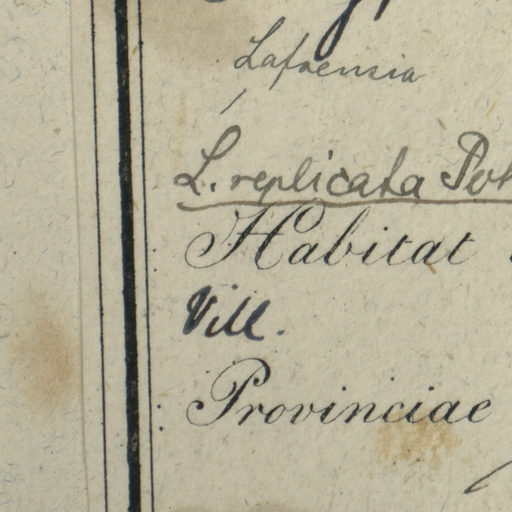 Lafoensia
L. replicata Poh
Habitat
Vill.
Provinciae